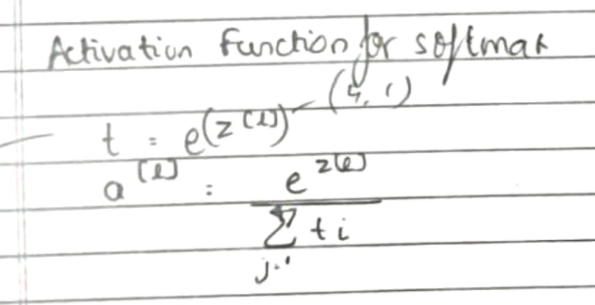 Activation function for softmax
t = e^(z^[l]) (4, 1)
a^[l] = e^z[l] / Σ_j=1 t i